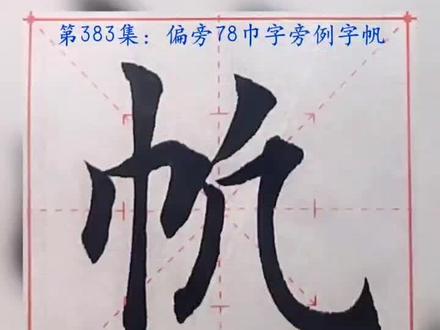 第383集：偏旁78巾字旁例字帆
帆